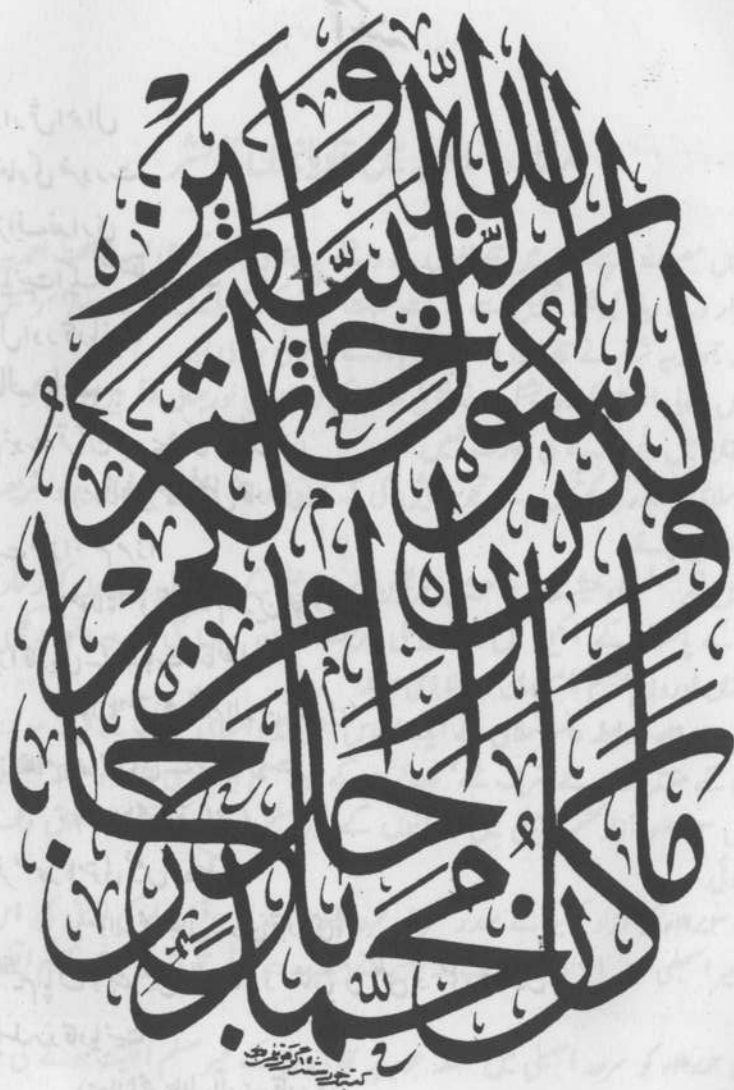 ما كان محمد أبا أحد من رجالكم
ولكن رسول الله وخاتم النبيين